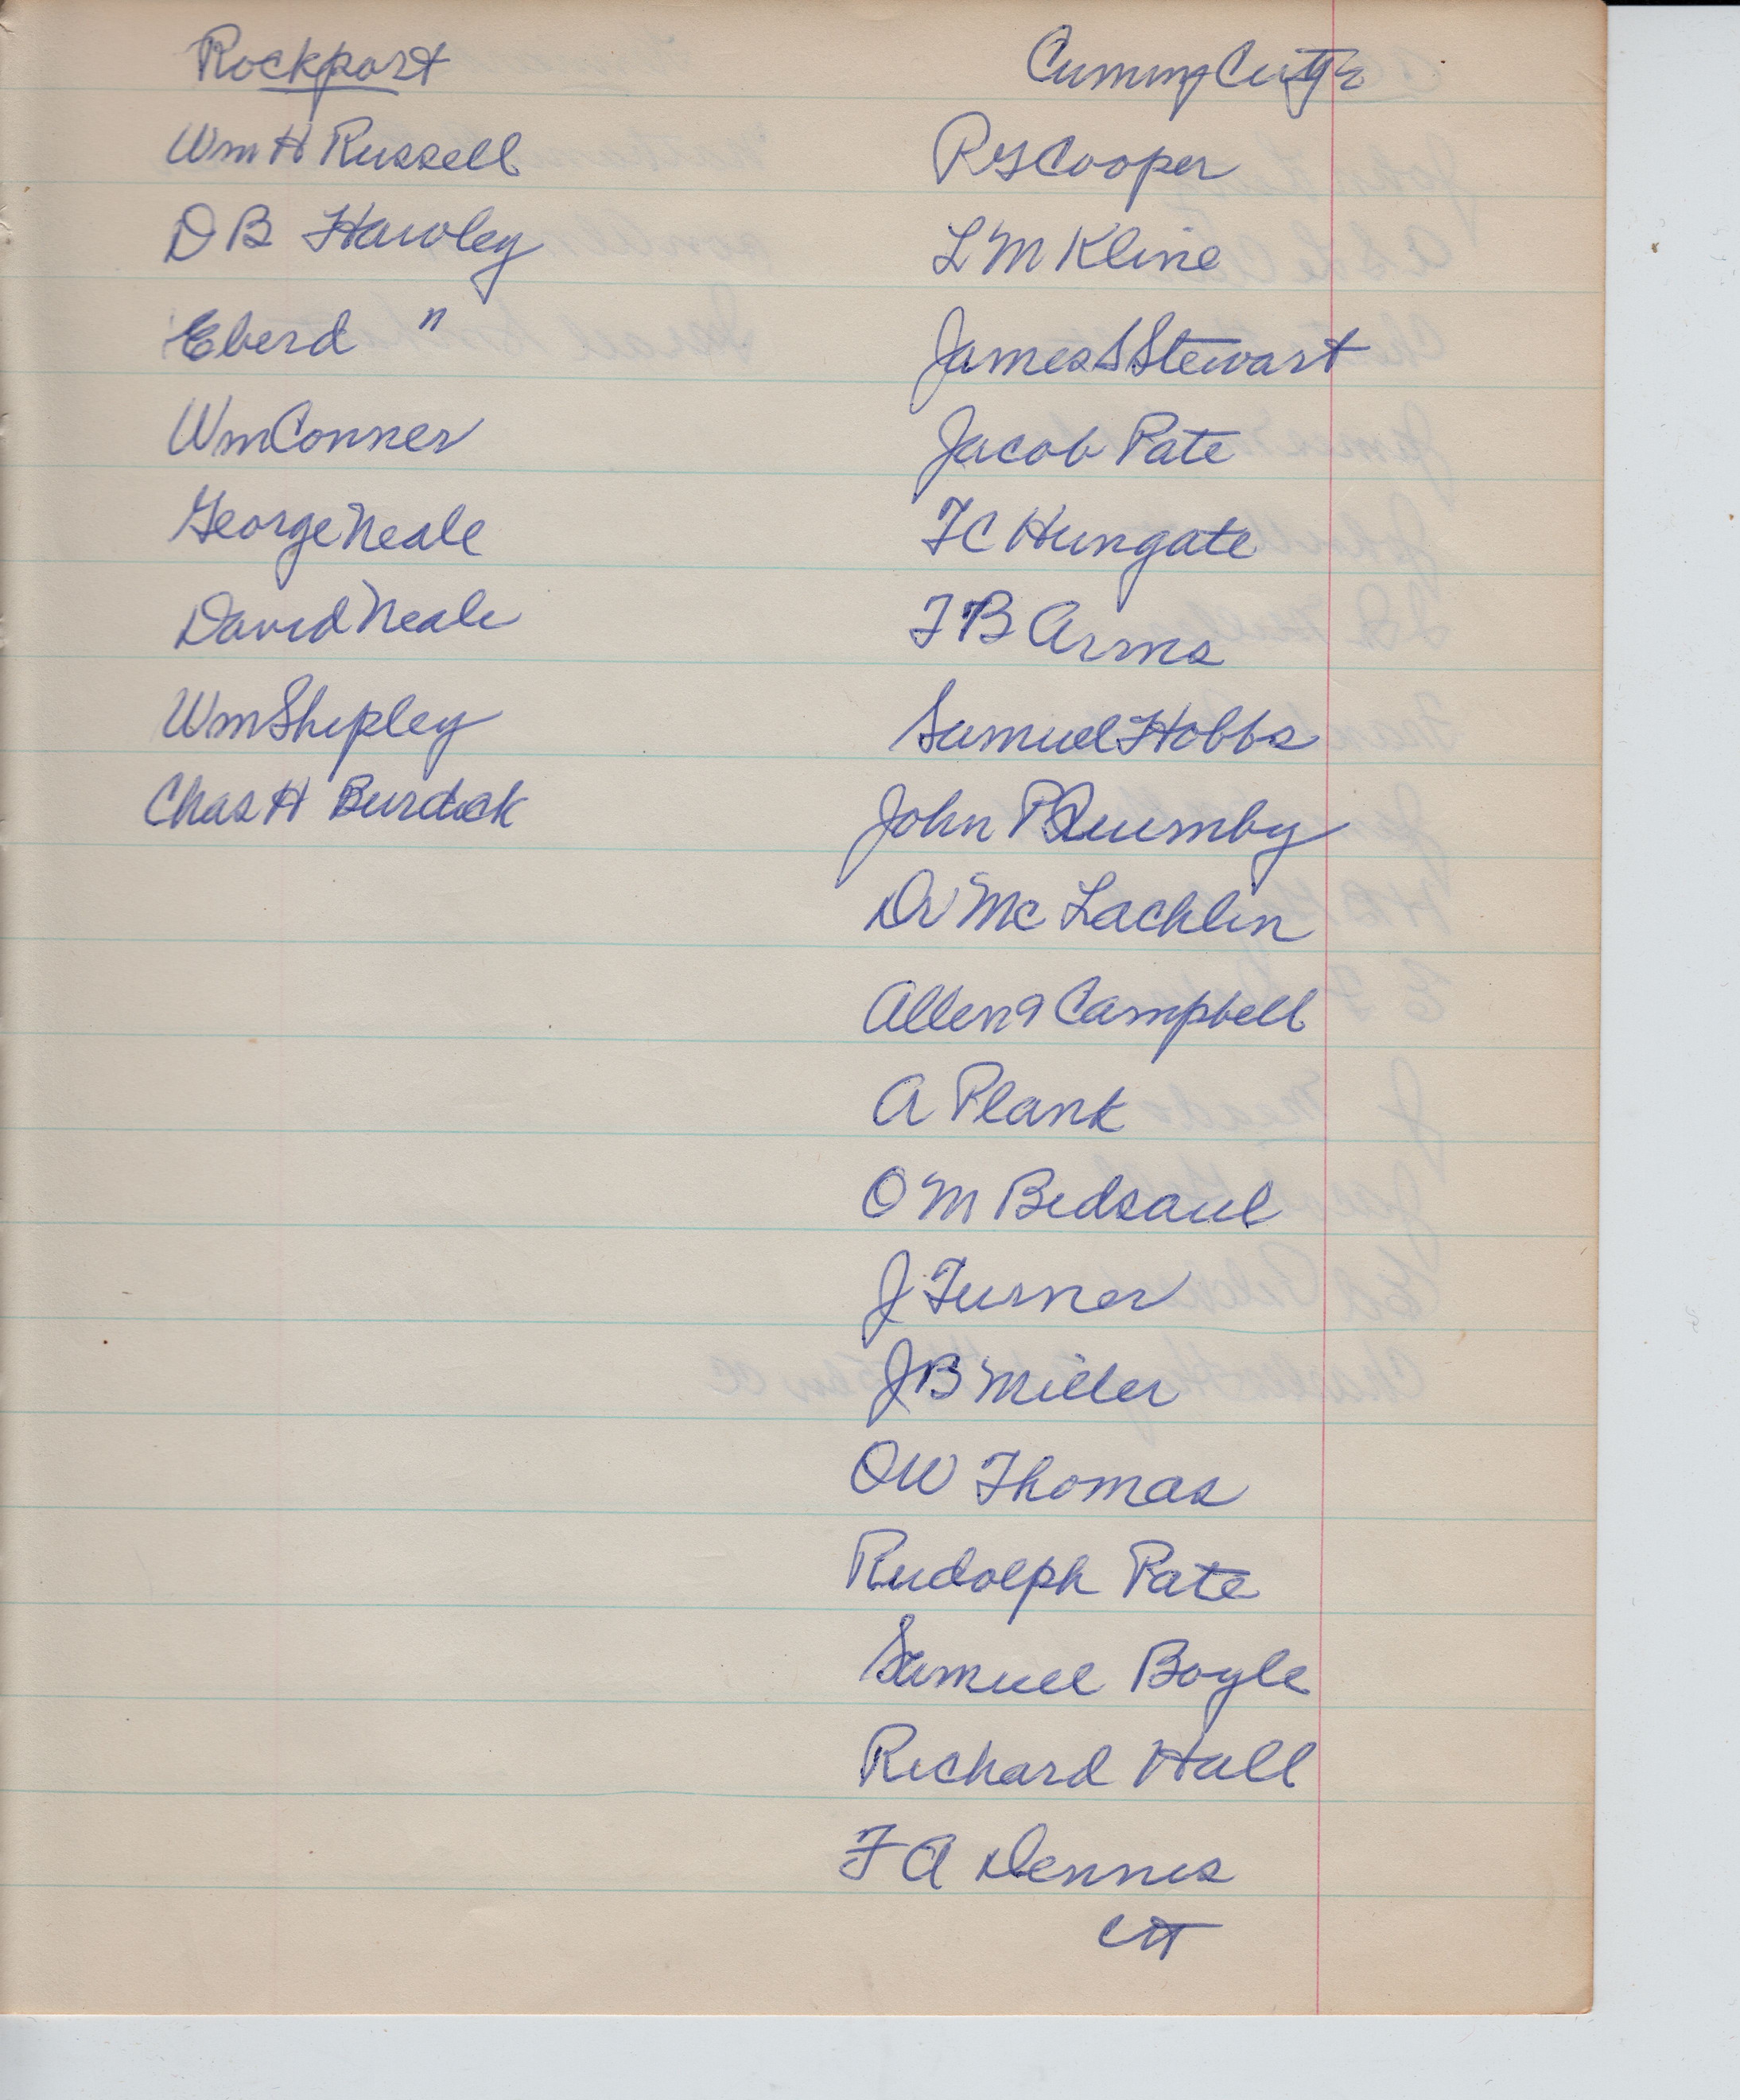 Rockport
Wm H Russell
D B Hawley
Eberd "
Wm Conner
George Neale
David Neale
Wm Shipley
Chas H Burdick
Cummy City
R G Cooper
L M Kline
James S Stewart
Jacob Pate
T C Hungate
T B Arms
Samuel Hobbs
John P Quumby
Dr Mc Lachlin
Allen Campbell
A Plank
O M Bedsaul
J Turner
J B Miller
O W Thomas
Rudolph Pate
Samuel Boyle
Richard Hall
F A Dennis